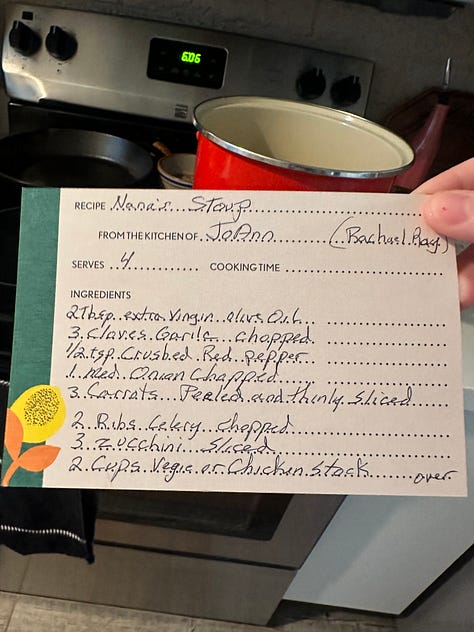 6:06
RECIPE Nana's Stoup
FROM THE KITCHEN OF JoAnn (Rachael Ray)
SERVES 4 COOKING TIME
INGREDIENTS
2 Tbsp. extra virgin olive Oil
3 Cloves Garlic chopped
1/2 tsp Crushed Red pepper
1 med. Onion Chopped
3 Carrots Peeled and thinly sliced
2 Ribs Celery Chopped
3 Zucchini Sliced
2 Cups Vegie or Chicken Stock over